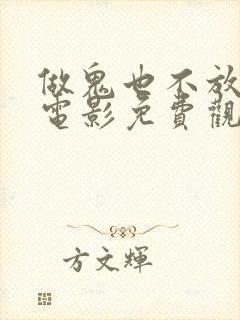 做鬼也不放
電影免費觀
方文輝